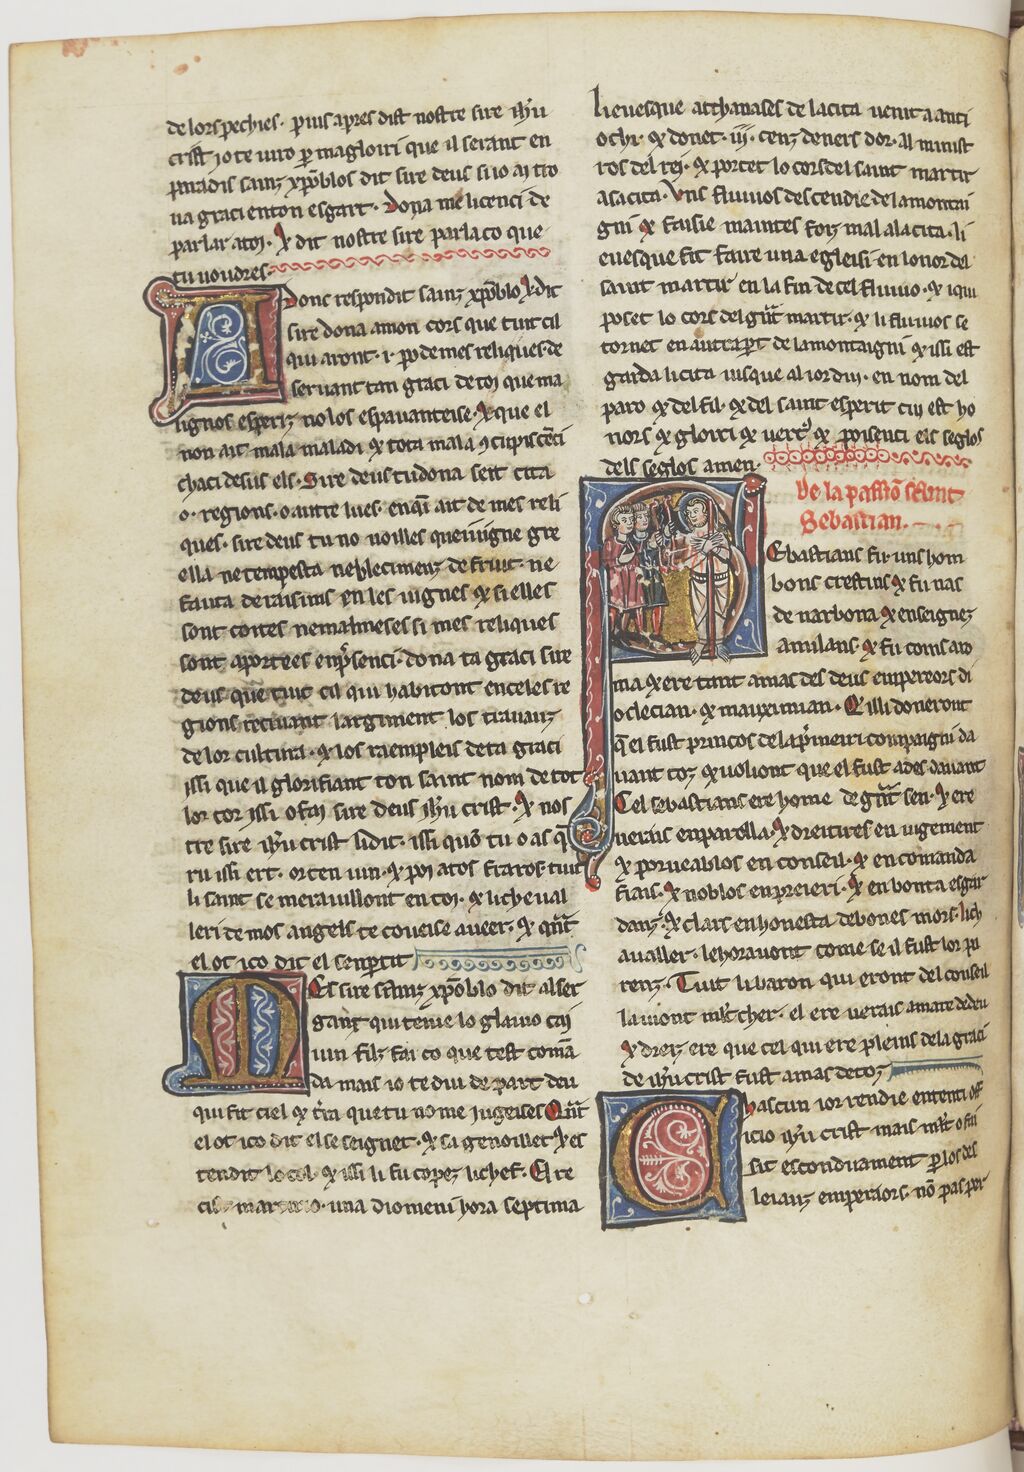 de lors pechies. puis apres dist nostre sire ihu
crist jo te iuro p ma gloiri que il serant en
pmadis sainz xpoblos dit sire deus si io ai tro
ua graci enton esgart. Dona me licenci de
parlar a toi. & dit nostre sire parla co que
tu uoudres.
Donc respondit sainz xpoblo & dit
sire dona a mon cors que tuit cil
qui aront .i. po de mes reliques. de
seruant tan graci de toi que ma
lignos esperiz no los espauanteise. & que el
non ait mala maladi & tota mala 9cupiscenci
chaci desus els. Sire deus tu dona seit cita
o. regions. o autre lues. en q ait de mes reli
ques. sire deus tu no uoilles que uingne gre
ella ne tempesta ne blecimenz de fruit. ne
fauta de raisims en les uignes & si elles
sont totes nemalmeses si mes reliques
sont aportees en psenci. dona ta graci sire
deus que tuit cil qui habitont en celes re
gions reciuant largiment los trauauz
de lor cultura. & los raempleis de ta graci
issi que il glorifiant ton saint nom de tot
lor cor issi o fai sire deus ihu crist. & nos
tre sire ihu crist li dit. issi quo tu o as q
ru issi ert. or ten uin. & poi a tos fraros. tuit
li saint se merauillont en toi. & li cheual
leri de mos angels te coueise aueer. & qnt
el ot ico dit el se nptit
Es sire sainz xpoblo dit al ser
gant qui tenie lo glaiuo cai
uin filz fai co que test coma
da mais io te diu de part deu
qui fit ciel & tra que tu no me iugeises Qnt
el ot ico dit el se seignet. & sa genoillet & es
tendit lo col & issi li fu copez li chef. El re
cit martirio. una diomeni hora septima
li euesque atthanases de la cita uenit a anti
ochi. & donet .iii. cenz deners dor. al minist
ros del rei. & portet lo cors del saint martir
a sa cita. Uns fluuios descendie de la montai
gni & faisie maintes foiz mal a la cita. li
euesque fit faire una egleisi en lonor del
saint martir en la fin de cel fluuio. & iqui
poset lo cors del gnt martir. & li fluuios se
tornet en autra part de la montaigni & issi est
garda li cita iusque al ior dui. en nom del
paro & del fil. & del saint esperit cui est ho
nors & gloiri & uertz & poisenci els seglos
dels seglos amen.
De la passion saint
Sebastian.
Ebastians fu uns hom
bons crestins & fu nas
de narbona & enseignez
a milans. & fu toms a ro
ma & ere tant amas des deus empereors di
oclecian. & mauximian. Q illi doneront
q el fust princos de la pmeiri compaigni da
uant toz & uoliont que el fust ades dauant
Cel sebastians ere home de gnt sen. & ere
uerais en parolla. & dreitires en iugement
& porueablos en conseil. & en comanda
fiais. & noblos en preieri. & en bonta esgar
danz. & clars en honesta de bones mors. li ch
aualler. le honrauont come se il fust lor pa
renz. Tuit li baron qui eront del conseil
lamont mlt cher. el ere uerais amare de deu
& dreiz ere que cel qui ere pleins de la graci
de ihu crist fust amas de toz
hascun ior rendie ententi off
icio ihu crist mais mlt o fai
sit esconduament p los des
leiauz emperiors. no pas per